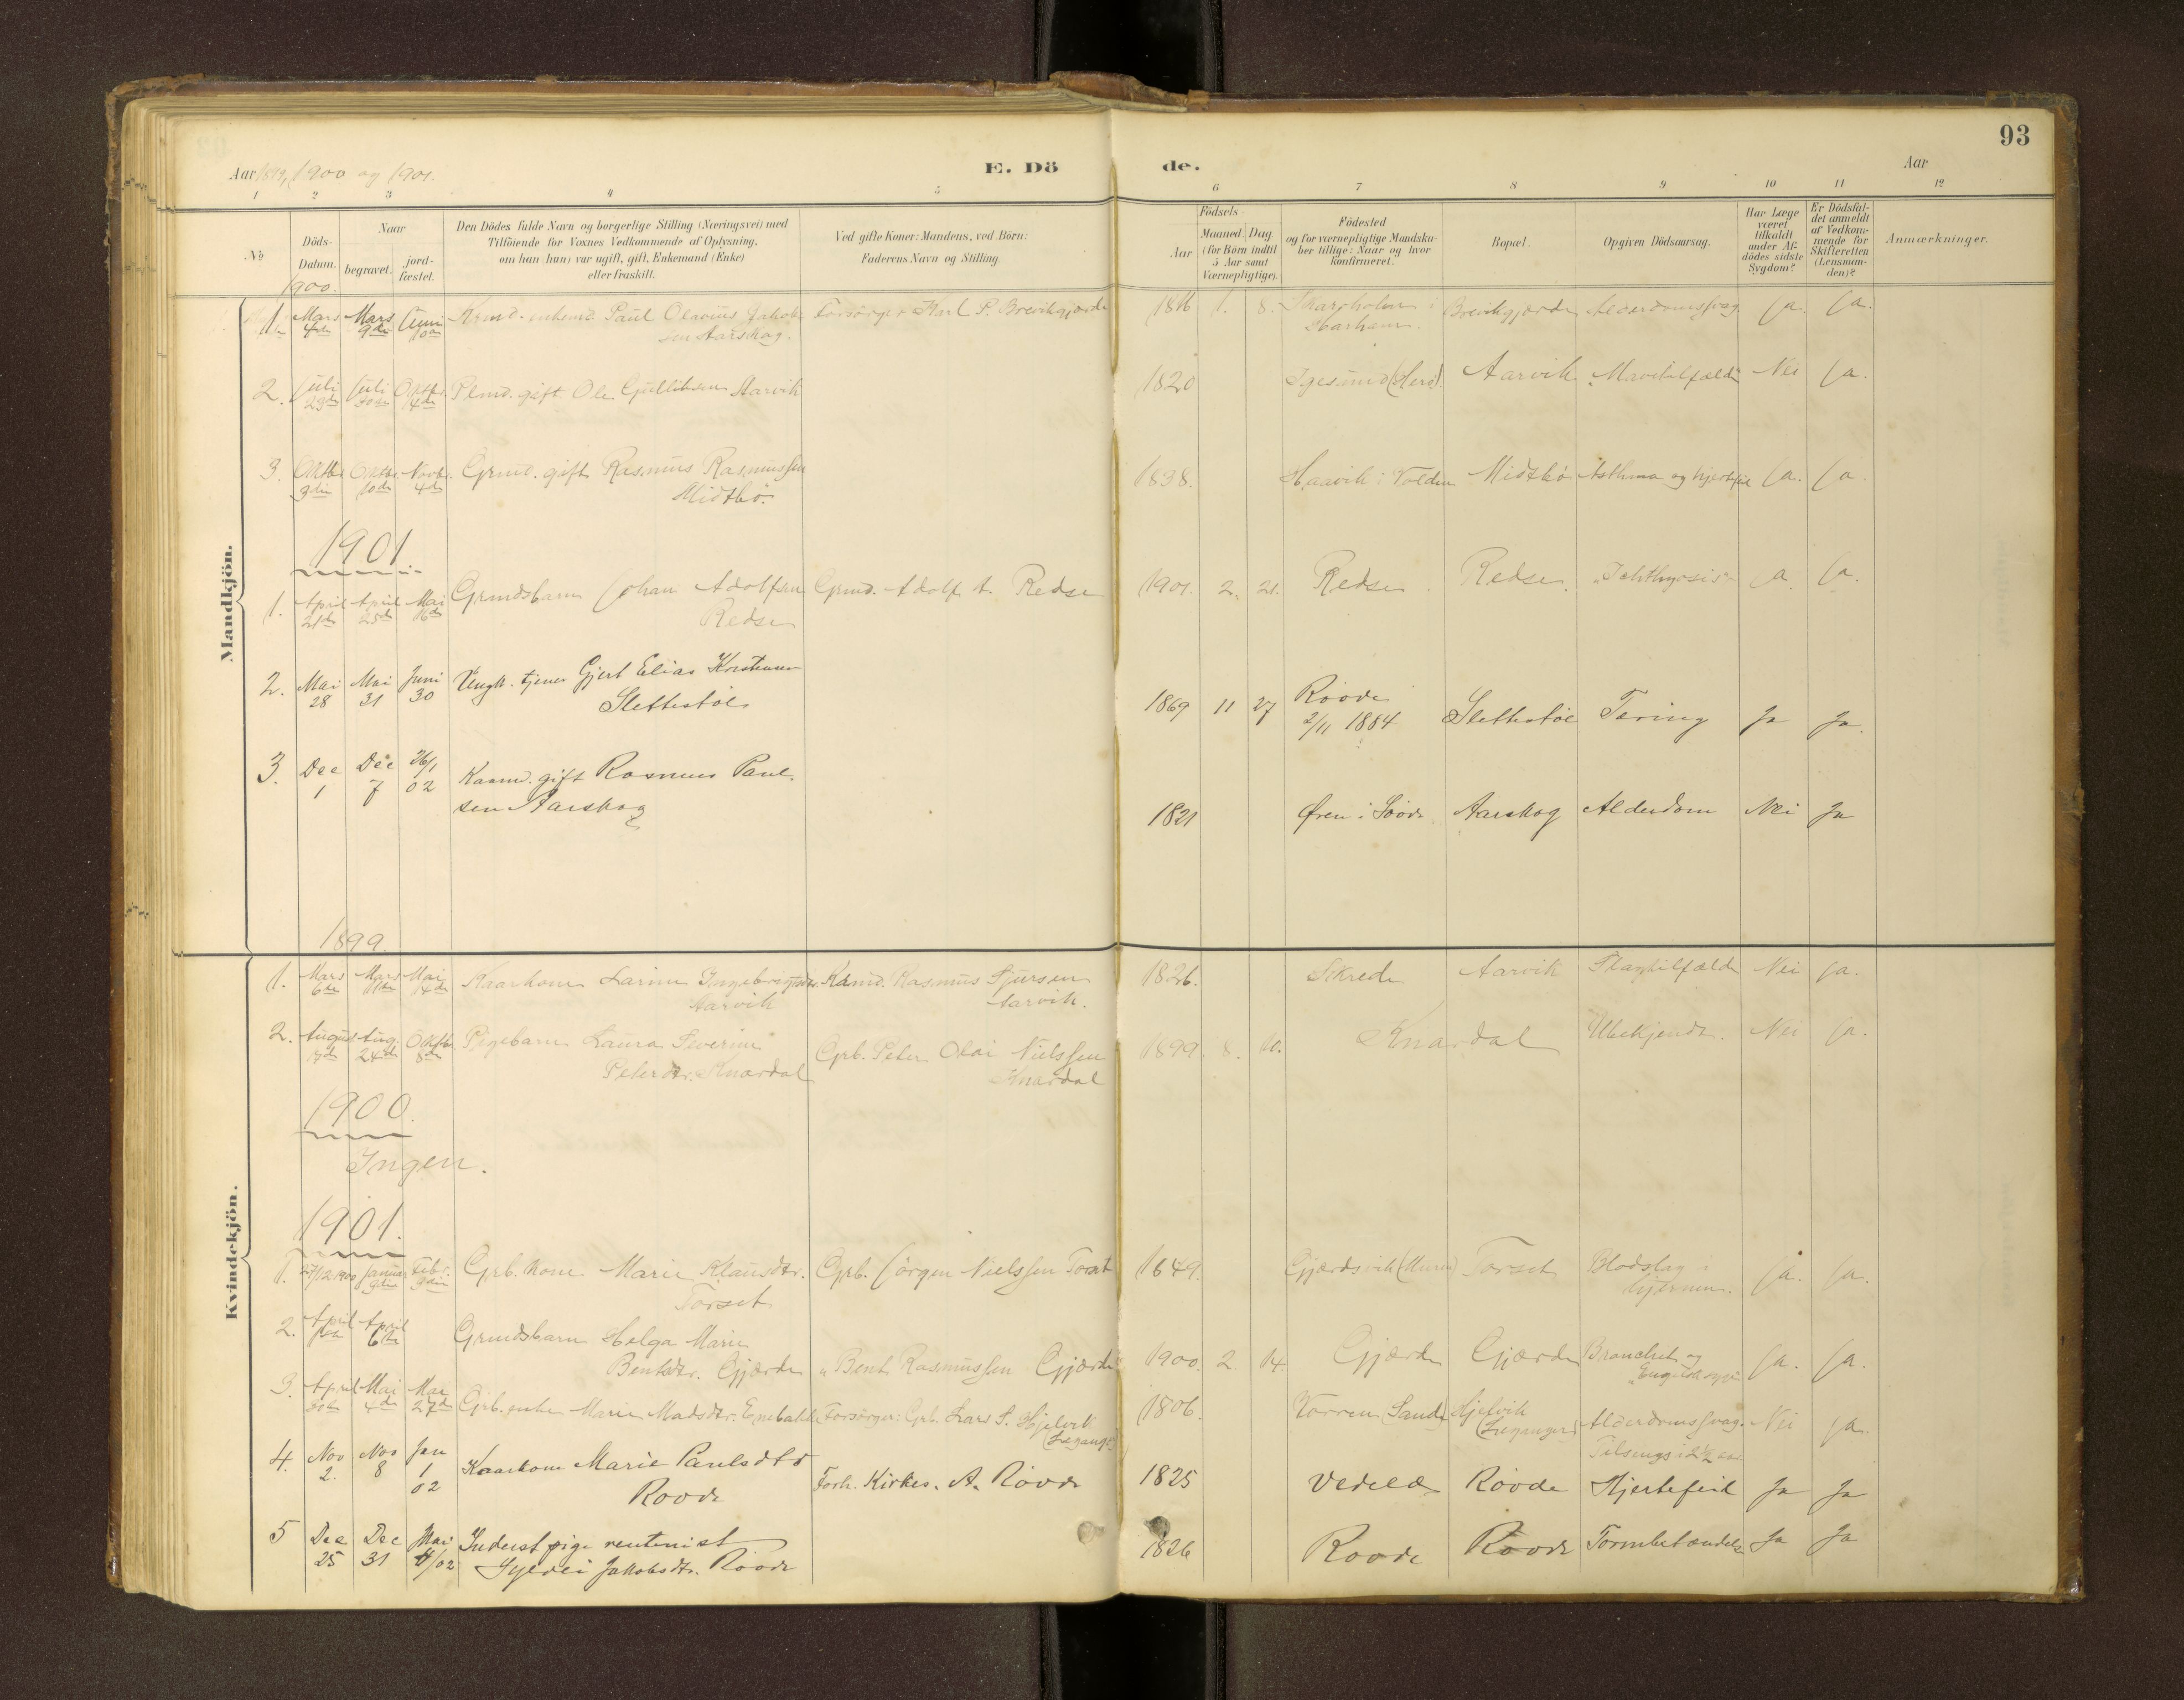 93
Aar 1899, 1900 og 1901.
E. Dö de.
Aar
1 2 3 4 5 6 7 8 9 10 11 12
No
Döds-Datum.
Naar
begravet.
jord-fæstet.
Den Dödes fulde Navn og borgerlige Stilling (Næringsvei) med
Tilföiende for Voxnes Vedkommende af Oplysning,
om han (hun) var ugift, gift, Enkemand (Enke)
eller fraskilt.
Ved gifte Koner: Mandens, ved Börn:
Faderens Navn og Stilling.
Födsels-
Aar
Maaned Dag
(for Börn indtil
5 Aar samt
Værnepligtige).
Födested
og for værnepligtige Mandskaber tillige: Naar og hvor
konfirmeret.
Bopæl.
Opgiven Dödsaarsag.
Har Læge
været
tilkaldt
under Afdödes sidste
Sygdom?
Er Dödsfaldet anmeldt
af Vedkommende for
Skifteretten
(Lensmanden)?
Anmærkninger.
Mandkjön.
1900.
1. Mars 4de Mars 9de Juni 10de Paul Olavius Jakobsen Aarskog. Forsörger Karl P. Brevikgjærde 1816 1. 8. Brevikgjærde Alderdomssvag. Ja. Ja.
2. Juli 23de Juli 30te Oktbr. 4de Plmd. gift Ole Gulliksen Aarvik 1820 Igesund (Herö). Aarvik Mavetilfælde Nei Ja.
3. Oktbr 3die Oktbr 10de Novbr. 4de Grmd. gift Rasmus Rasmussen
Midtbö. 1838. Haavik i Volden Midtbö Asthma og hjertefeil Ja. Ja.
1901.
1. April 21de April 25de Mai 16de Grmdsbarn Johan Adolfsen
Redse Grmd. Adolf A. Redse 1901. 2. 21. Redse Redse. Ichthyosis Ja Ja.
2. Mai 28 Mai 31 Juni 30 Ungk. tjener Gjert Elias Kristensen
Slettestöl 1869 11 27 Rövde
2/11 1884 Slettestöl Tæring Ja Ja.
3. Dec 1 Dec 7 26/1 02 Kaarm. gift Rasmus Paulsen Aarskog 1821 Ören i Sövde Aarskog Alderdom Nei Ja
Kvindekjön.
1899.
1. Mars 6te Mars 11te Mai 14de Kaarkone Larine Ingebrigtsdtr.
Aarvik Kdmd. Rasmus Sjursen
Aarvik. 1826. Skrede Aarvik Slagtilfælde Nei Ja.
2. August Aug. 24de Oktbr. 8de Pigebarn Laura Severine
Petersdtr. Knardal Grb. Peter Olai Nielssen
Knardal 1899. 8. Knardal Ubekjendt. Nei Ja.
1900.
Ingen.
1901.
1. 27/12 1900 Januar 9de Febr. 9die Grb. kone Marie Klausdtr.
Torset Grb. Jörgen Nielssen Torset 1849. Gjærdsvik Torset Blodslag i
hjernen. Ja. Ja.
2. April April 6te Grmdsbarn Helga Marie
Bentsdtr. Gjærde " Bent Rasmussen Gjærde 1900. 2. 14. Gjærde Gjærde Bronchit og
"Engelsk syge" Ja. Ja.
3. April 30te Mai 4de Mai 27de Grb. enke Marie Madsdtr. Enebakke Forsörger: Grb. Lars S. Hjelvik 1806. Hjelvik Alderdomssvag. Nei Ja.
Tilsengs i 2½ aar.
4. Nov 2. Nov 8 Jan 1 02 Kaarkone Marie Paulsdtr
Rövde Forh. Kirkes. A. Rövde 1825 Vedeld Rövde Hjertefeil Ja Ja
5 Dec 25 Dec 31 Mai 4/02 Inderst pige rentenist
Jakobsdtr. Rövde 1826 Rövde Rövde Tarmbetændelse Ja Ja